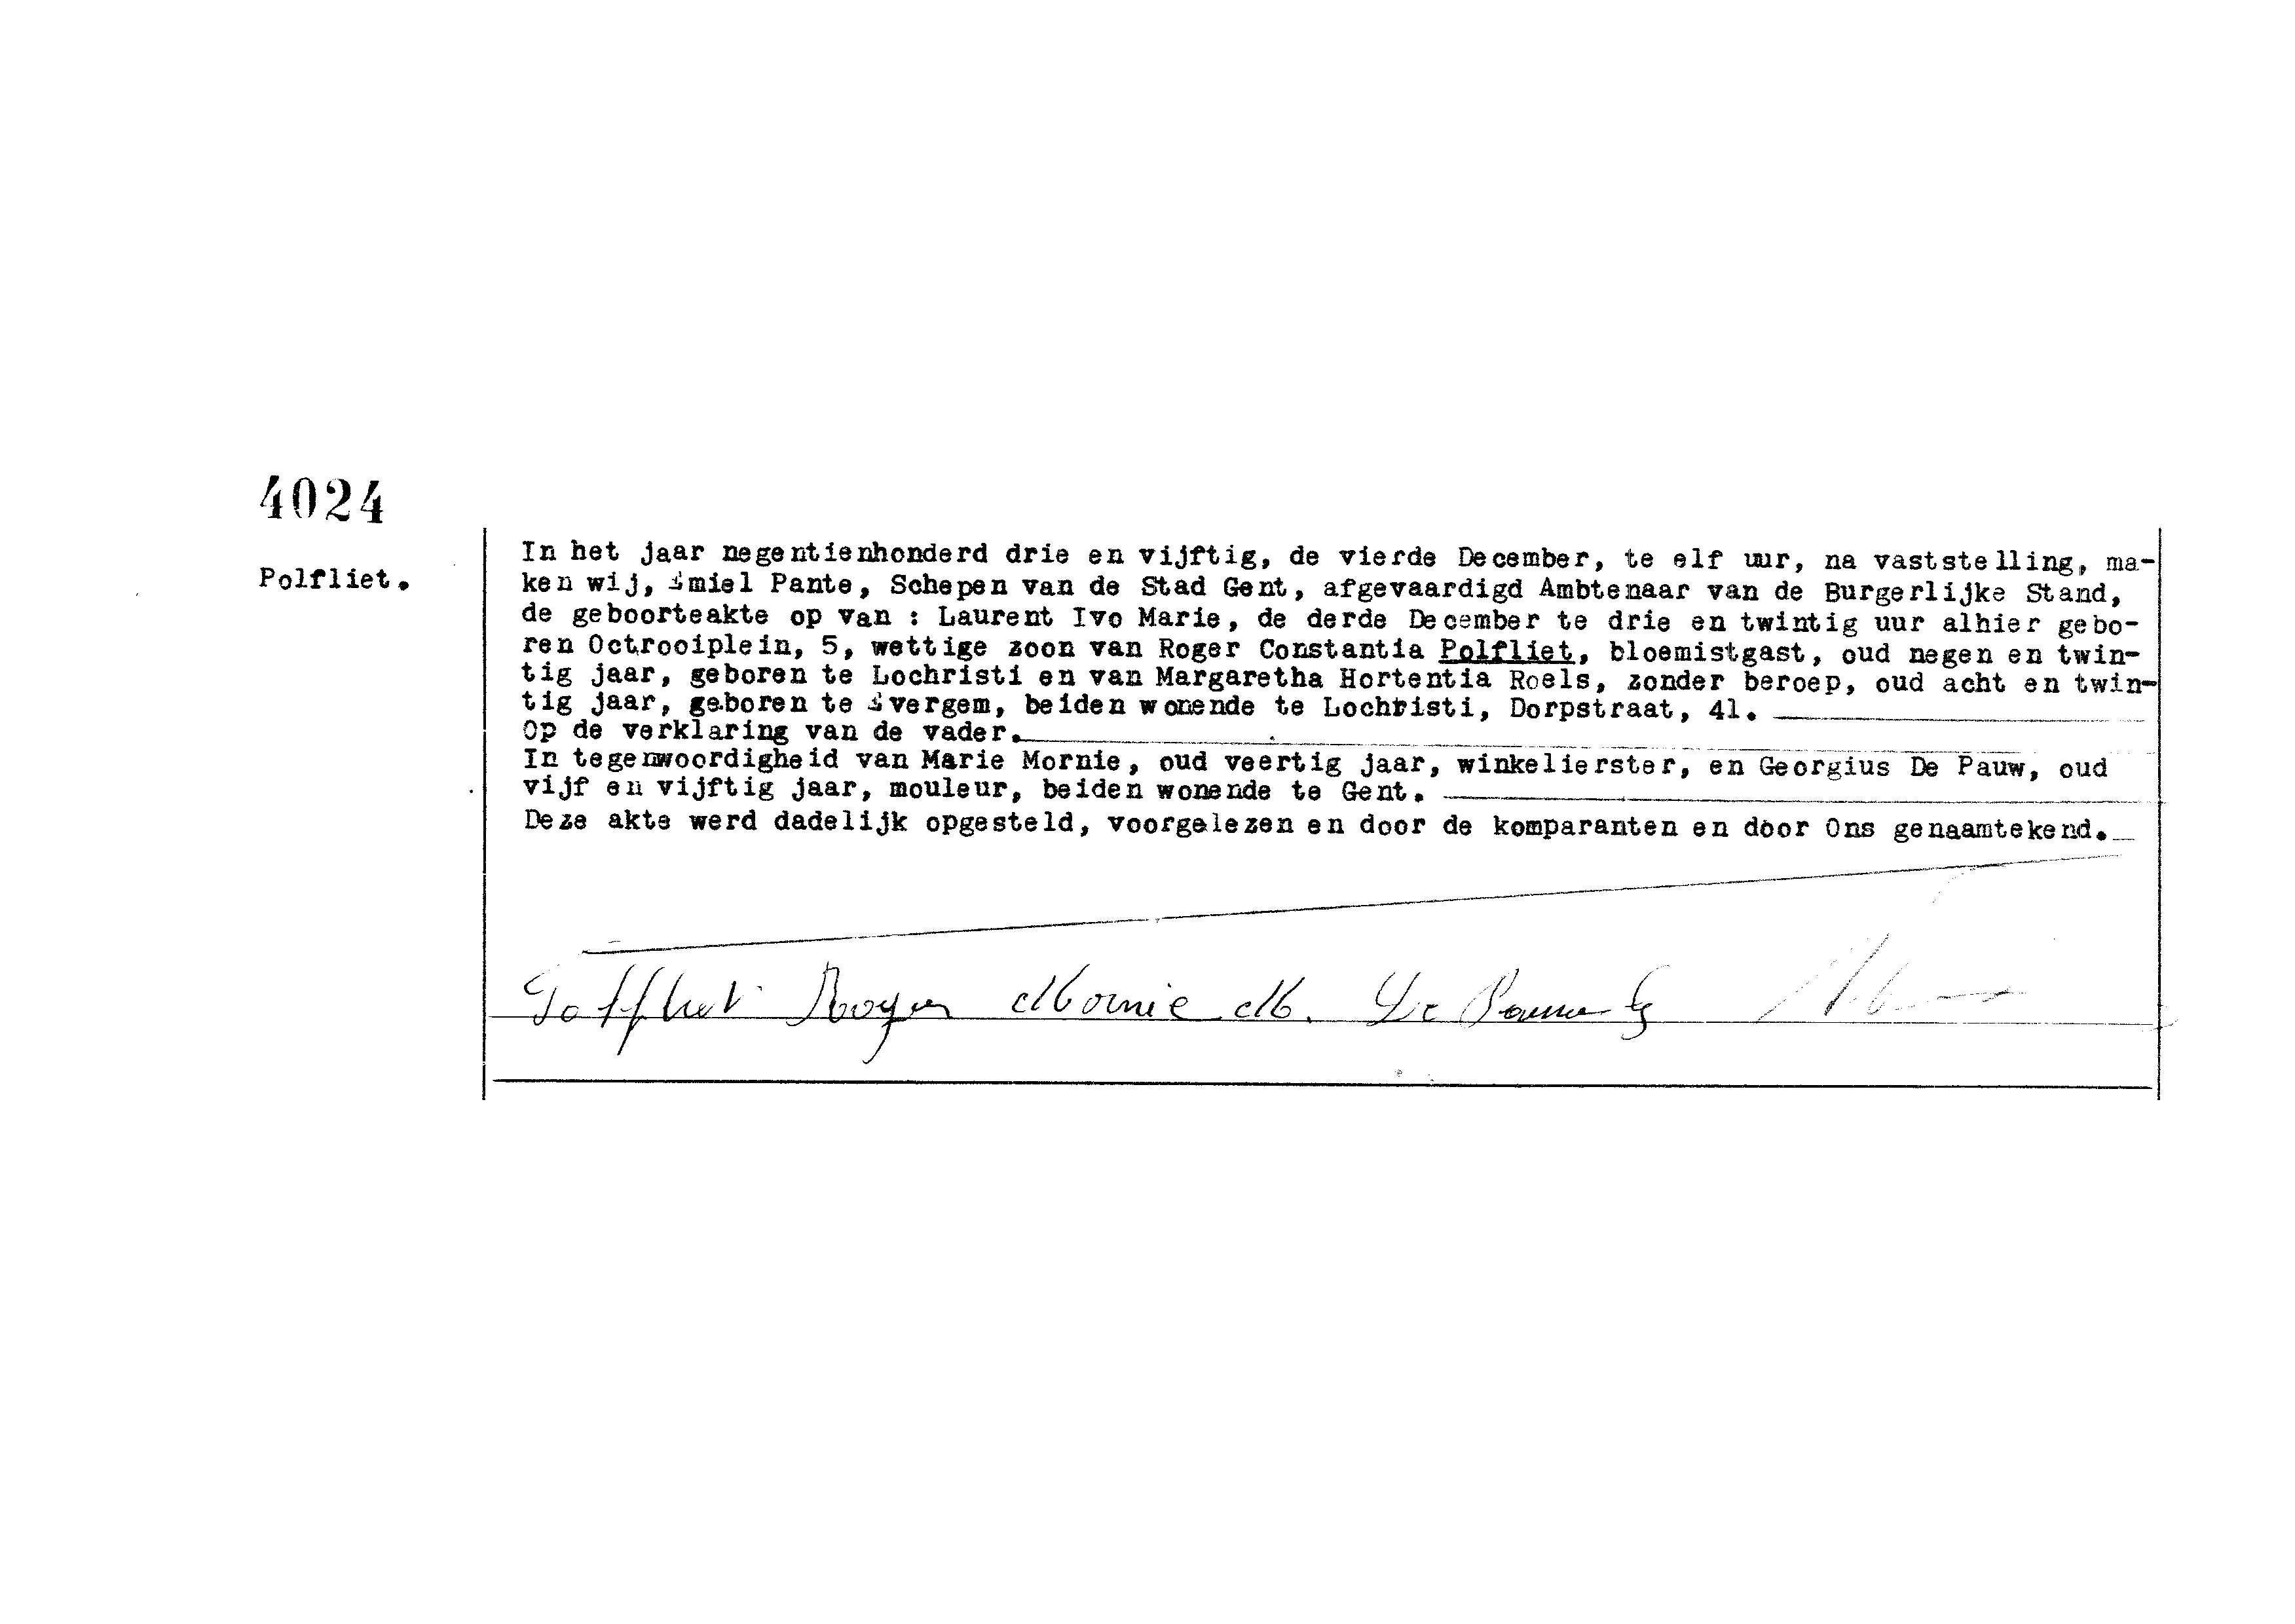 4024
Polfliet.
In het jaar negentienhonderd drie en vijftig, de vierde December, te elf uur, na vaststelling, ma-
ken wij, Emiel Pante, Schepen van de Stad Gent, afgevaardigd Ambtenaar van de Burgerlijke Stand,
de geboorteakte op van : Laurent Ivo Marie, de derde December te drie en twintig uur alhier gebo-
ren Octrooiplein, 5, wettige zoon van Roger Constantia Polfliet, bloemistgast, oud negen en twin-
tig jaar, geboren te Lochristi en van Margaretha Hortentia Roels, zonder beroep, oud acht en twin-
tig jaar, geboren te Evergem, beiden wonende te Lochristi, Dorpstraat, 41.
Op de verklaring van de vader.
In tegenwoordigheid van Marie Mornie, oud veertig jaar, winkelierster, en Georgius De Pauw, oud
vijf en vijftig jaar, mouleur, beiden wonende te Gent.
Deze akte werd dadelijk opgesteld, voorgelezen en door de komparanten en door Ons genaamtekend.
Polfliet Roger Mornie M. De Pauw G